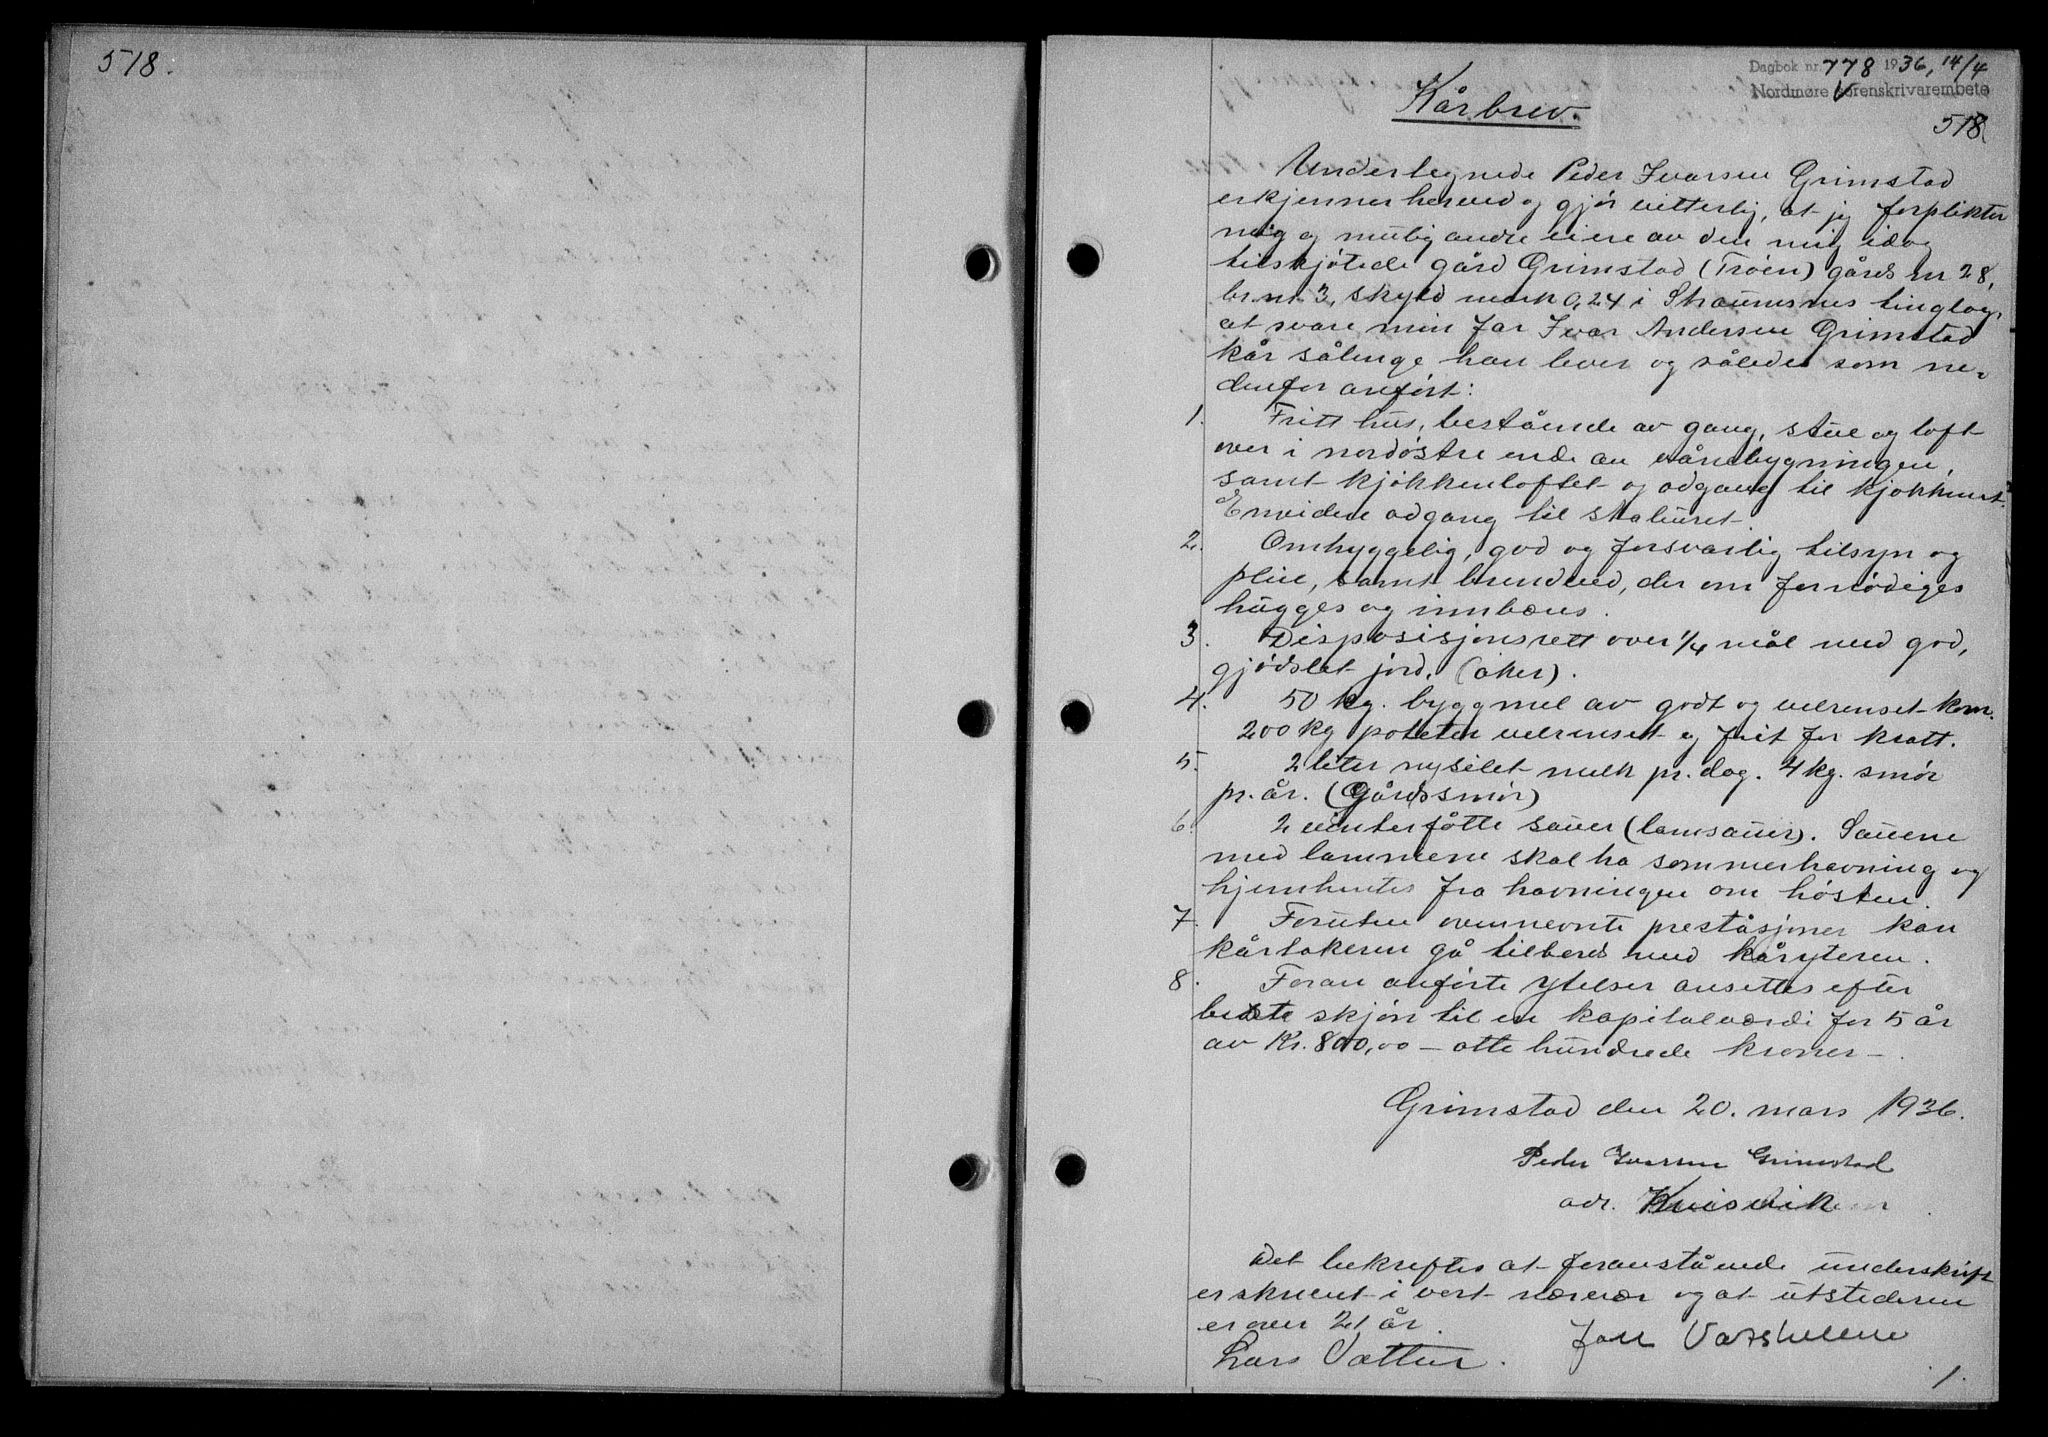 518.
Dagbok nr. 778 1936, 14/4
Nordmøre sorenskrivarembete
518.
Kårbrev.
Undertegnede Peder Ivarsen Grimstad
erkjenner herved og gjør vitterlig, at jeg forplikter
mig og mulig andre eiere av den mig idag
tilskjøtede gård Grimstad (Trøen) gårds nr 28,
br.nr. 3, skyld mark 0,24 i Straumsnes tinglag,
at svare min far Ivar Andersen Grimstad
kår sålenge han lever og således som ne-
denfor anført:
1. Fritt hus, bestående av gang, stue og loft
over i nordøstre ende av våningbygningen,
samt kjøkkenloftet og adgang til kjøkkenet.
Envidere adgang til staburet.
2. Omhyggelig, god og forsvarlig tilsyn og
pleie, samt brendved, der om fornødiges
hugges og innbæres.
3. Disposisjonsrett over 1/4 mål med god,
gjødslet jord. (åker).
4. 50 kg. byggmel av godt og velrenset korn.
200 kg poteter velrenset og frit for kratt.
5. 2 liter nysilet melk pr. dag. 4 kg. smør
pr. år. (Gårdssmør)
6. 2 vinterfôtte sauer (lamsauer). Sauene
med lammene skal ha sommerhavning og
hjemhentes fra havningen om høsten.
7. Foruten ovennevnte prestasjoner kan
kårtakeren gå tilbords med kåryteren.
8. Foran anførte ytelser ansettes efter
beste skjøn til en kapitalværdi for 5 år
av Kr. 800,00 – otte hundrede kroner –.
Grimstad den 20. mars 1936.
Peder Ivarsen Grimstad
adr. Kvisvik
Det bekreftes at foranstående underskrift
er skrevet i vort nærvær og at utstederen
er over 21 år.
Lars Vatten.
1.